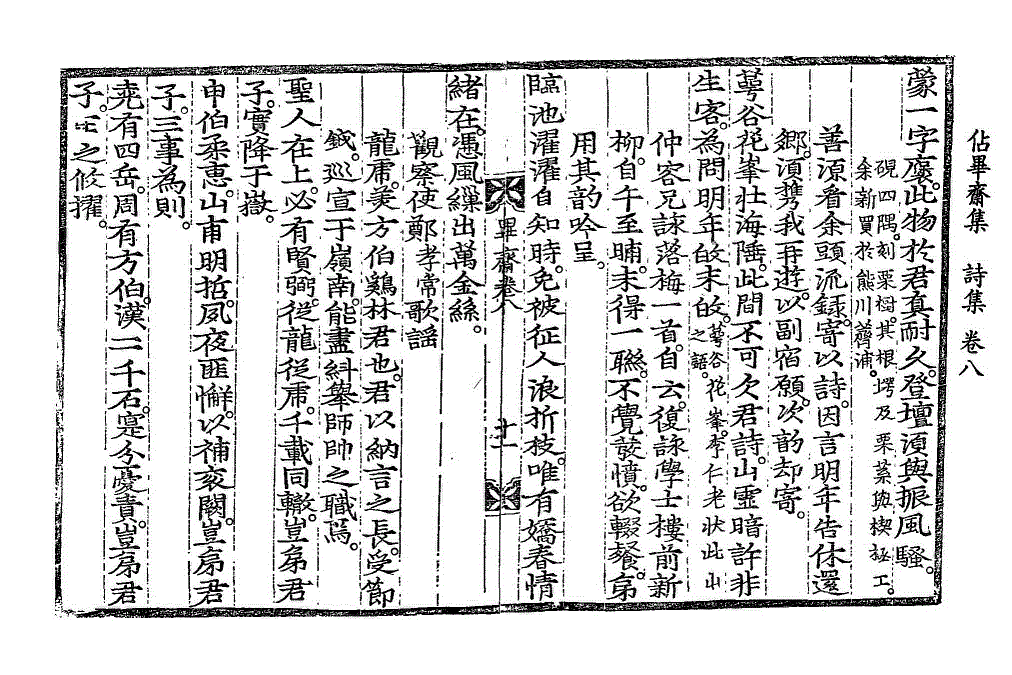 佔畢齋集　詩集　卷八
蒙一字褒。此物於君真耐久。登壇須與振風騷。
硯四隅。刻栗樹。其根塄及栗蒺與楔極工。
余新買於熊川薺浦。
善源看余頭流錄。寄以詩。因言明年告休還
鄉。須携我再遊。以副宿願。次韵却寄。
萼谷花峯壯海陲。此間不可欠君詩。山靈暗許非
生客。為問明年的末的。萼谷花峯。李仁老狀此山
之語。
仲容兄詠落梅一首。自云。復詠學士樓前新
柳。自午至晡。末得一聯。不覺發憤。欲輟餐。第
用其韵吟呈。
臨池濯濯自知時。免被征人浪折枝。唯有嬌春情
緖在。憑風繰出萬金絲。
觀察使鄭孝常歌謠
龍虎。美方伯鷄林君也。君以納言之長。受節
鉞。巡宣于嶺南。能盡糾舉師帥之職焉。
聖人在上。必有賢弼。從龍從虎。千載同轍。豈弟君
子。實降于嶽。
申伯柔惠。山甫明哲。夙夜匪懈。以補衮闕。豈弟君
子。三事為則。
堯有四岳。周有方伯。漢二千石。寔分憂責。豈弟君
子。王之攸擢。
畢齋卷八
十一